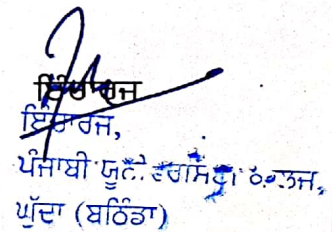 ਇੰਚਾਰਜ
ਇੰਚਾਰਜ,
ਪੰਜਾਬੀ ਯੂਨੀਵਰਸਿਟੀ ਕਾਲਜ,
ਘੁੱਦਾ (ਬਠਿੰਡਾ)